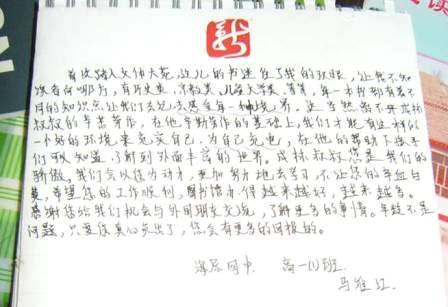 首次踏入文化大苑,这儿的书迷住了我的双眼,让我不知
该看向哪方,有历史类,
儿童文学类,等等,每一本书都有着不
同的知识点让我们去
这当然离不开成林
叔叔的辛苦劳作,在他辛勤劳作的基础上,我们才能有这样的
一个好的环境来充实自己,为自己充电,在他的帮助下孩子
们可以知道,了解到外面丰富的世界。成林叔叔您是我们的
骄傲,我们会以您为动力,更加努力地去学习,不让您的辛血白
费,希望您的工作顺利,图书馆办得越来越好,越来越多。
感谢您给我们机会与外间朋友交流,了解更多的事情。年龄不是
问题,只要您真心付出了,您会有更多的回报的。
高一(1)班.
马维江.